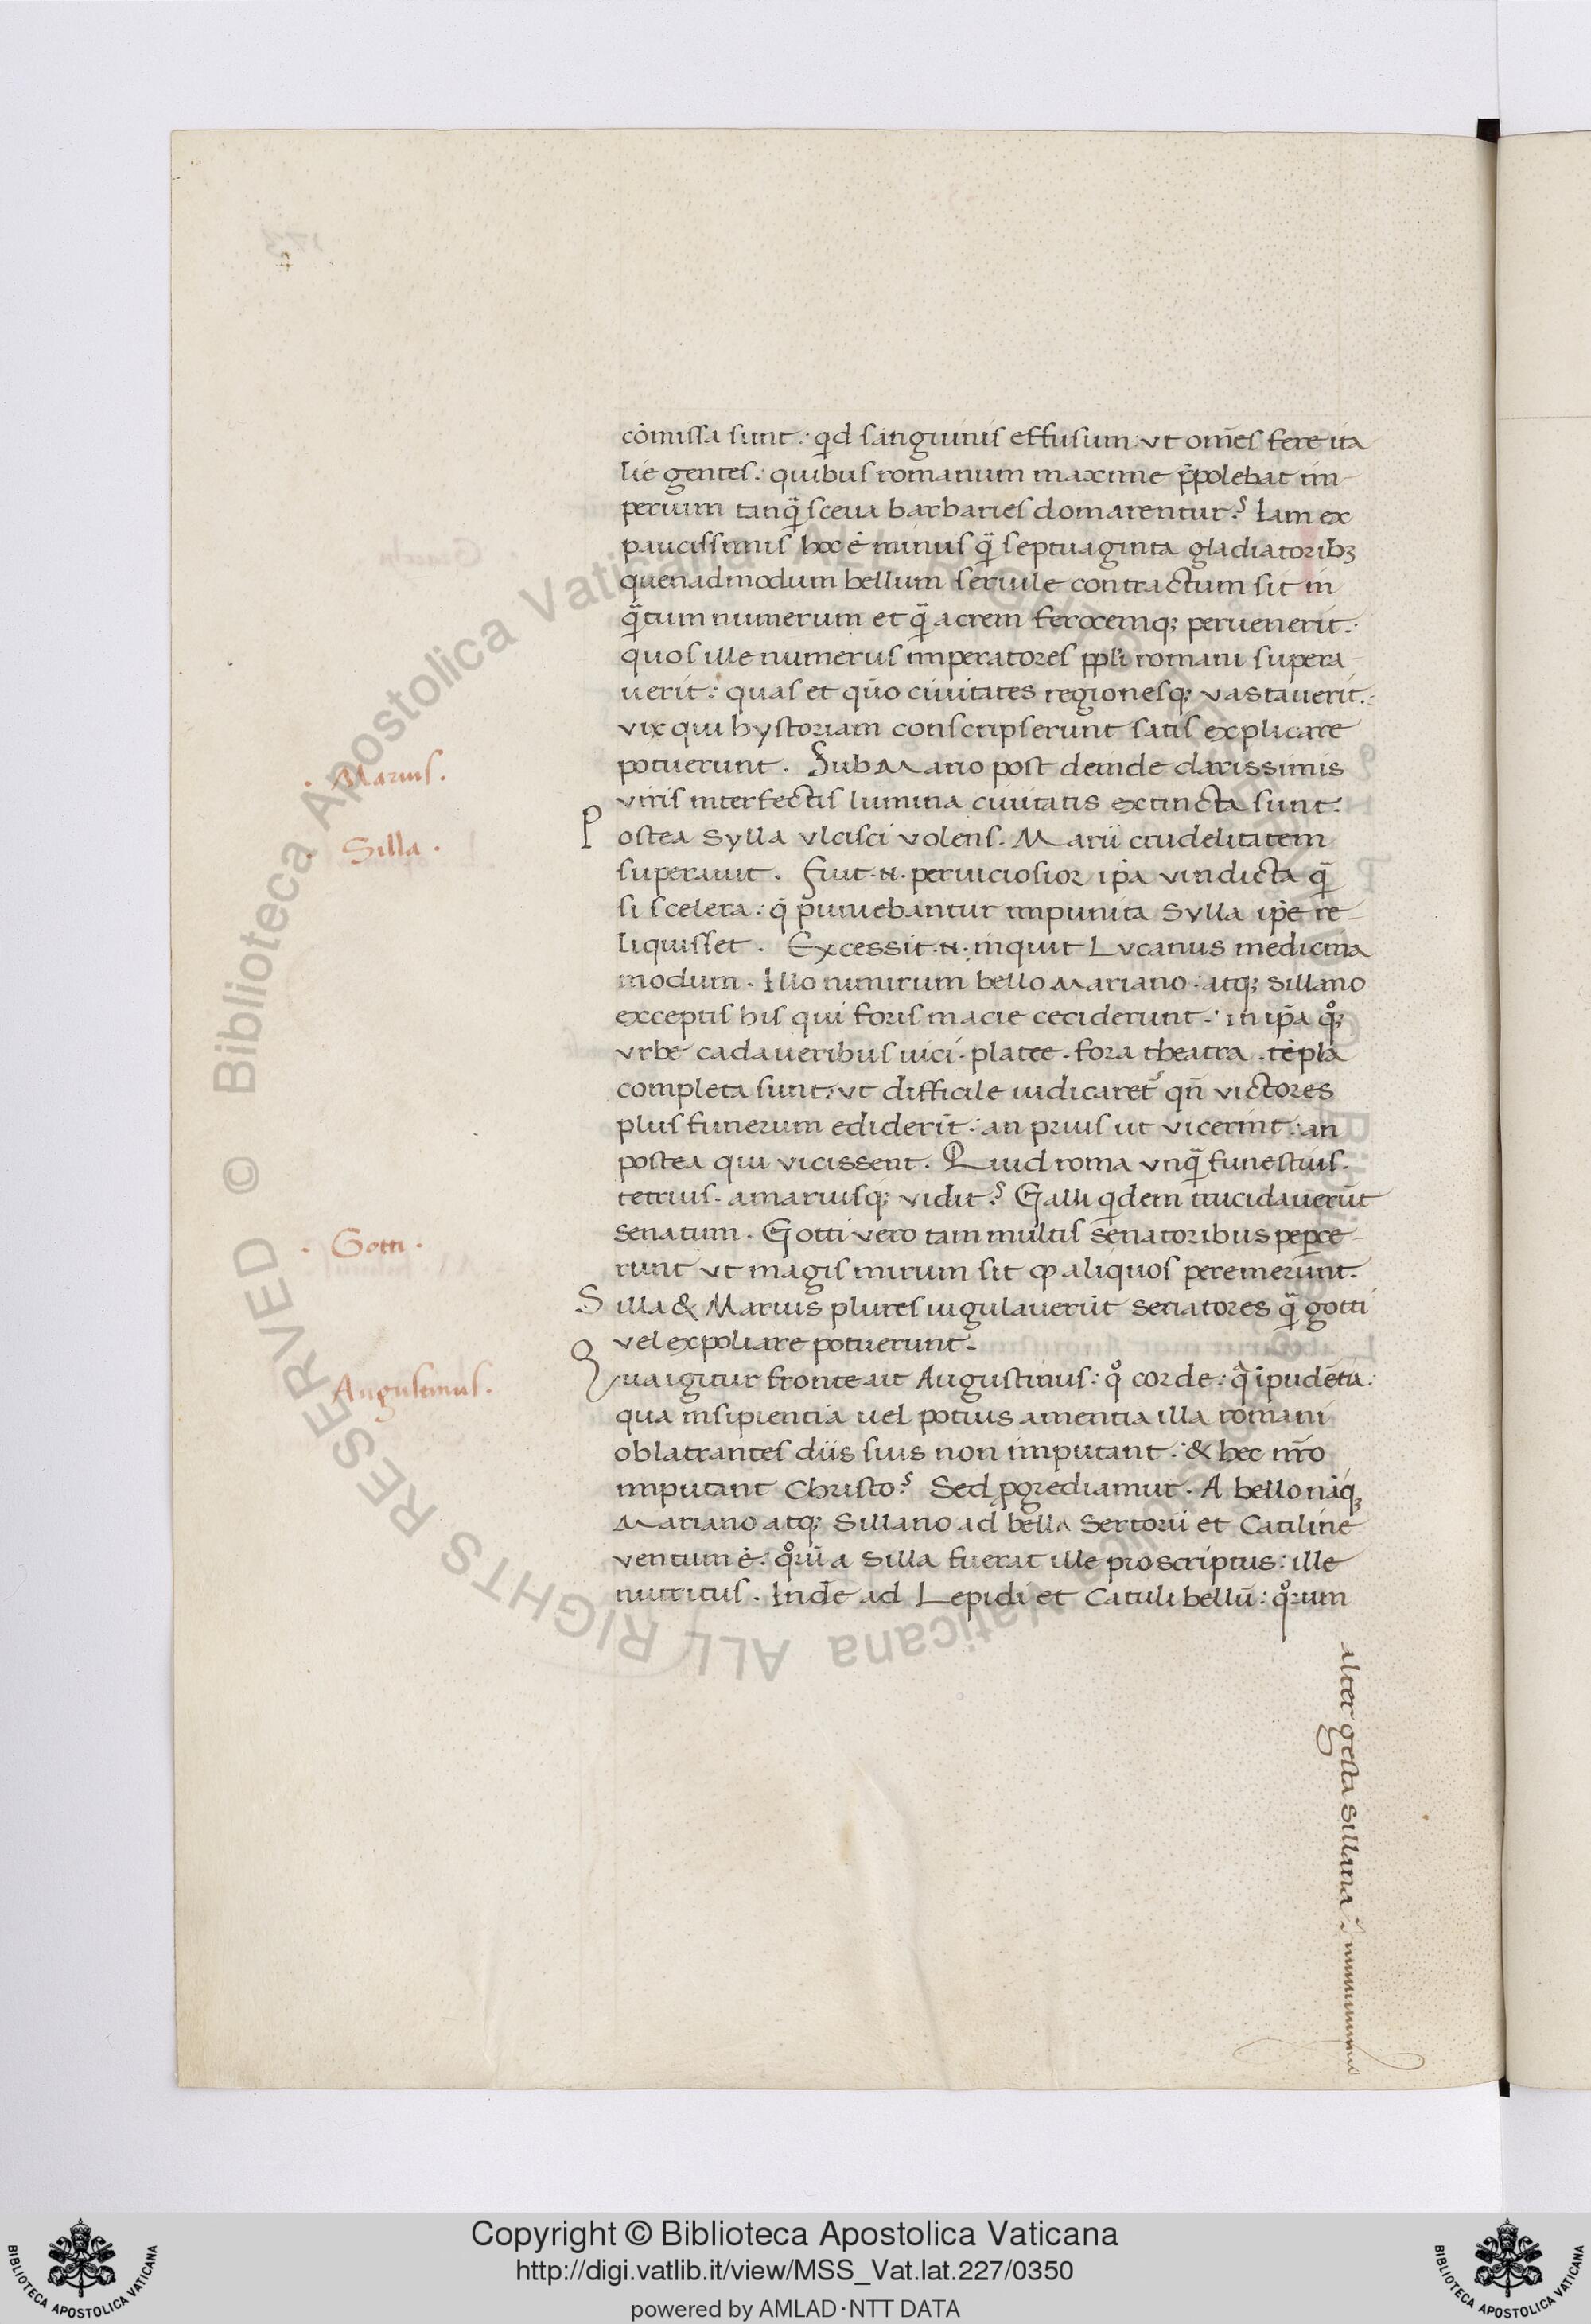 cōmissa sunt: qd sanguinis effusum: vt om̄es fere ita
lie gentes: quibus romanum maxime p̄polebat im-
perium tanq̄ sceua barbaries domarentur? Iam ex
paucissimis hoc ē minus q̄ septuaginta gladiatorib3
quenadmodum bellum seruile contractum sit in
q̄tum numerum et q̄ acrem ferocemq; peruenerit:
quos ille numerus imperatores ppli romani supera-
uerit: quas et quo ciuitates regionesq; vastauerit:
vix qui hystoriam conscripserunt satis explicare
potuerunt. Sub Mario post deinde clarissimis
viris interfectis lumina ciuitatis extincta sunt.
Postea Sylla vlcisci volens. Marii crudelitatem
superauit. Fuit .n. perniciosior ip̄a vindicta q̄
si scelera: q̄ puniebantur impunita Sylla ip̄e re-
liquisset. Excessit .n. inquit Lvcanus medicina
modum. Illo nimirum bello Mariano: atq; sillano
exceptis his qui foris in acie ceciderunt: in ip̄a qͦ;
vrbe cadaueribus uici. platee. fora theatra. tēpla
completa sunt: vt difficile iudicaret' qn̄ victores
plus funerum ediderīt: an prius ut vicerint: an
postea qui vicissent. Quid roma vnq̄ funestius.
tetrius. amariusq; vidit? Galli qdem trucidauerūt
senatum. Gotti vero tam multis senatoribus peperce-
runt vt magis mirum sit ꝙ aliquos peremerunt.
Silla & Marius plures iugulauerūt senatores q̄ gotti
vel expoliare potuerunt.
Qua igitur fronte ait Augustinus: qͦ corde: q̄ ipudētia:
qua insipientia uel potius amentia illa romani
oblatrantes diis suis non imputant: & hec nr̄o
imputant Christo? Sed pgrediamur. A bello nāq;
Mariano atq; Sillano ad bella Sertorii et Catiline
ventum ē: qͦrū a Silla fuerat ille proscriptus: ille
nutritus. Inde ad Lepidi et Catuli bellū: qͦrum
alter gesta Sillana
. Marius.
. Silla .
. Gotti .
Augustinus.
© Biblioteca Apostolica Vaticana ALL RIGHTS RESERVED
Copyright © Biblioteca Apostolica Vaticana
http://digi.vatlib.it/view/MSS_Vat.lat.227/0350
powered by AMLAD·NTT DATA
BIBLIOTECA APOSTOLICA VATICANA
BIBLIOTECA APOSTOLICA VATICANA